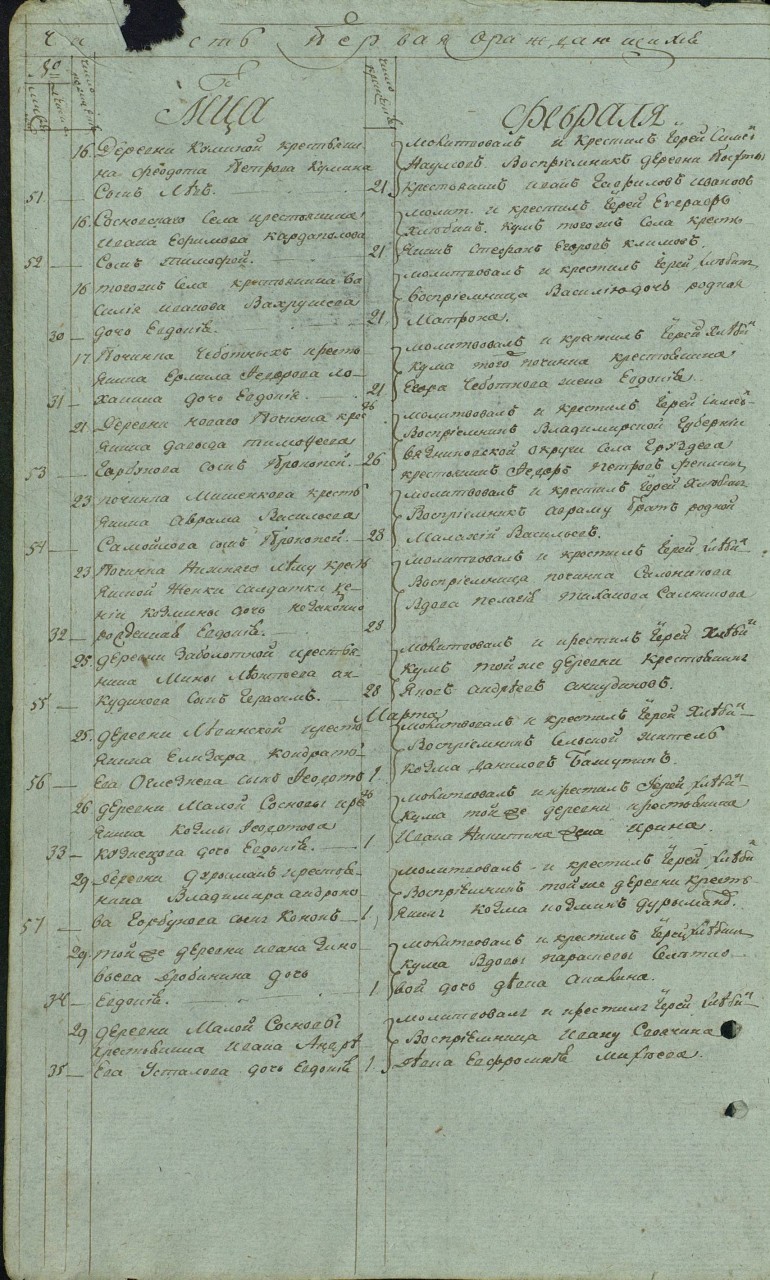 Часть первая ораждающихся
Мца Февраля
16. Деревни Куликой крестьяни
на Федота Петрова Кулика
51 Сынъ Левъ. 21.
Молитвовалъ и крестилъ Іерей Симео
Наумовъ. Воспріемникъ деревни
крестьянинъ Иванъ Гавриловъ Ивановъ
16. Сосновскаго Села крестьянина
Ивана Ефимова Кардаполова
52 Сынъ Тимофей. 21
молит. и крестилъ Іерей Евграфъ
Хлюбинъ. Кумъ тогожъ Села кресть
янинъ Стефанъ Егоровъ Климовъ.
16 тогожъ Села крестьянина Ва
силія Иванова Вахрушева
30 дочь Евдокія. 21
молитвовалъ и крестилъ Іерей Хлюбин
Воспріемница Василію дочь родная
Матрона.
17 Починка Чеботныхъ кресть
янина Ермила Федорова Ло
31 ханина дочь Евдокія. 21
молитвовалъ и крестилъ Іерей
кума того починка крестьянина
Егора Чеботнова жена Евдокія.
21. Деревни новаго Починка крес
янина давыда тимофеева
53 Горбунова сынъ Прокопей. 26
молитвовалъ и крестилъ Іерей Симео
Воспріемникъ Владимирской Губерніи
Вязниковской округи Села Груздева
крестьянинъ Федоръ Петровъ
23 починка Мишенкова кресть
янина Аврама Васильева
54 Самойлова сынъ Прокопей. 28
молитвовалъ и крестилъ Іерей Хлюбин
Воспріемникъ Авраму братъ родной
Малахій Васильевъ.
23 Починка Нижняго Лыму кресть
янской Женки салдатки Ев
кіи Козмины дочь незаконно
32 рожденная Евдокія. 28
молитвовалъ и крестилъ Іерей
Воспріемница починка Салоникова
Вдова Пелагія Тиханова Салникова
25. деревни Заболотной крестья
нина Мины Леонтьева Ан
55 кудинова Сынъ Герасимъ. 28
молитвовалъ и крестилъ Іерей
Кумъ той же деревни крестьянинъ
Яковъ Андреевъ Анкудиновъ.
Марта
25. деревни Лвинской кресть
янина Елизара Кондрать
56 ева Огледнева сынъ Федотъ 1
молитвовалъ и крестилъ Іерей
Воспріемникъ Сельской житель
Козма Даниловъ Башутинъ.
26 деревни Малой Сосновы кре
янина Козмы Федотова
33 Кузнецова дочь Евдокія. 1
молитвовалъ и крестилъ Іерей
кума той же деревни крестьянина
Ивана Никитина жена Ирина.
29 деревни Дурыманъ крестья
нина Владимира Андроно
57 ва Горбунова сынъ Кононъ 1
молитвовалъ и крестилъ Іерей
Воспріемникъ той же деревни кресть
янинъ Козма Козминъ Дурыманъ.
29. той же деревни Ивана Зино
вьева Дробинина дочь
34 Евдокія. 1
молитвовалъ и крестилъ Іерей
кума Вдовы Парасковы
вой дочь девка Акилина.
29 деревни Малой Сосновы
крестьянина Ивана Андре
35 ева Усталова дочь Евдокія 1
молитвовалъ и крестилъ Іерей
Воспріемница Ивану
девка Евфросинія Михеева.